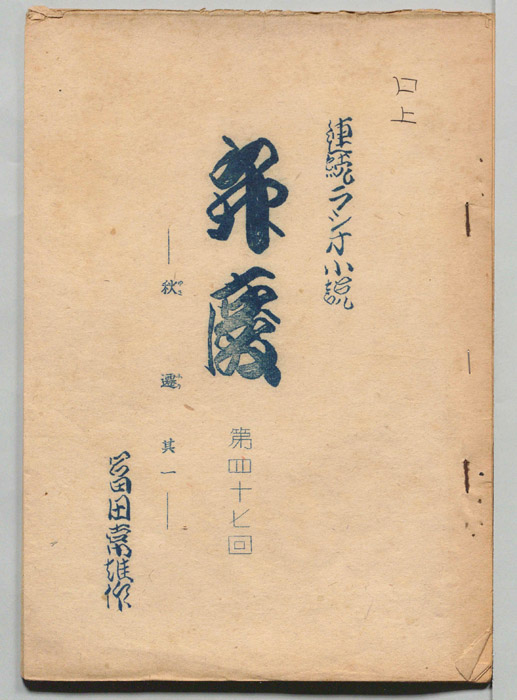 口上
連続ラジオ小説
辨慶
第四十七回
―秋遷 其一―
富田常雄作